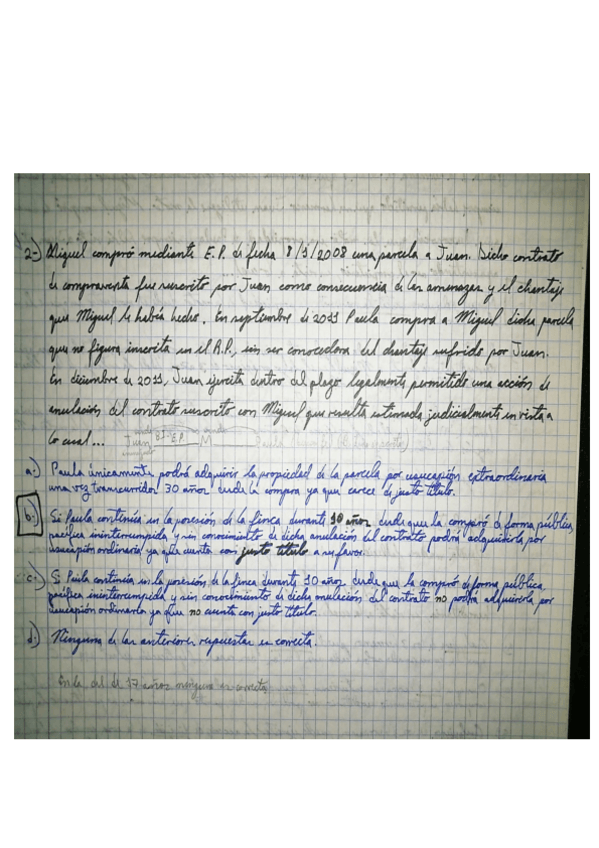 2-) Miguel compró mediante E.P. de fecha 8/5/2008 una parcela a Juan. Dicho contrato
de compraventa fue suscrito por Juan como consecuencia de las amenazas y el chantaje
que Miguel le había hecho. En septiembre de 2011 Paula compra a Miguel dicha parcela
que no figura inscrita en el R.P., sin ser conocedora del chantaje sufrido por Juan.
En diciembre de 2011, Juan ejercita dentro del plazo legalmente permitido una acción de
anulación del contrato suscrito con Miguel que resulta estimada judicialmente en vista a
lo cual...
Juan E.P. M Paula
a.) Paula únicamente podrá adquirir la propiedad de la parcela por usucapión extraordinaria
una vez transcurridos 30 años desde la compra ya que carece de justo título.
b.) Si Paula continúa en la posesión de la finca durante 10 años desde que la compró de forma pública,
pacífica ininterrumpida y sin conocimiento de dicha anulación del contrato podrá adquirirla por
usucapión ordinaria ya que cuenta con justo título a su favor.
c.) Si Paula continúa en la posesión de la finca durante 10 años desde que la compró de forma pública
pacífica ininterrumpida y sin conocimiento de dicha anulación del contrato no podrá adquirirla por
usucapión ordinaria ya que no cuenta con justo título.
d.) Ninguna de las anteriores respuestas es correcta.
En la del de 17 años ninguna es correcta